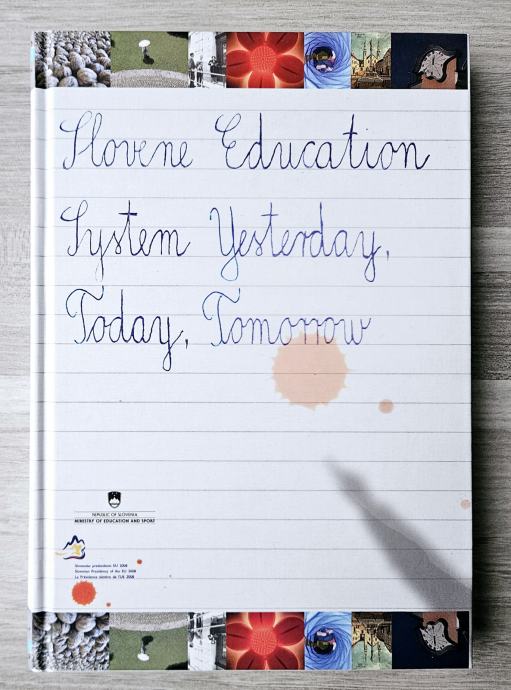 Slovene Education
System Yesterday,
Today, Tomorrow
REPUBLIC OF SLOVENIA
MINISTRY OF EDUCATION AND SPORT
Slovensko predsedstvo EU 2008
Slovenian Presidency of the EU 2008
La Présidence slovène de l'UE 2008